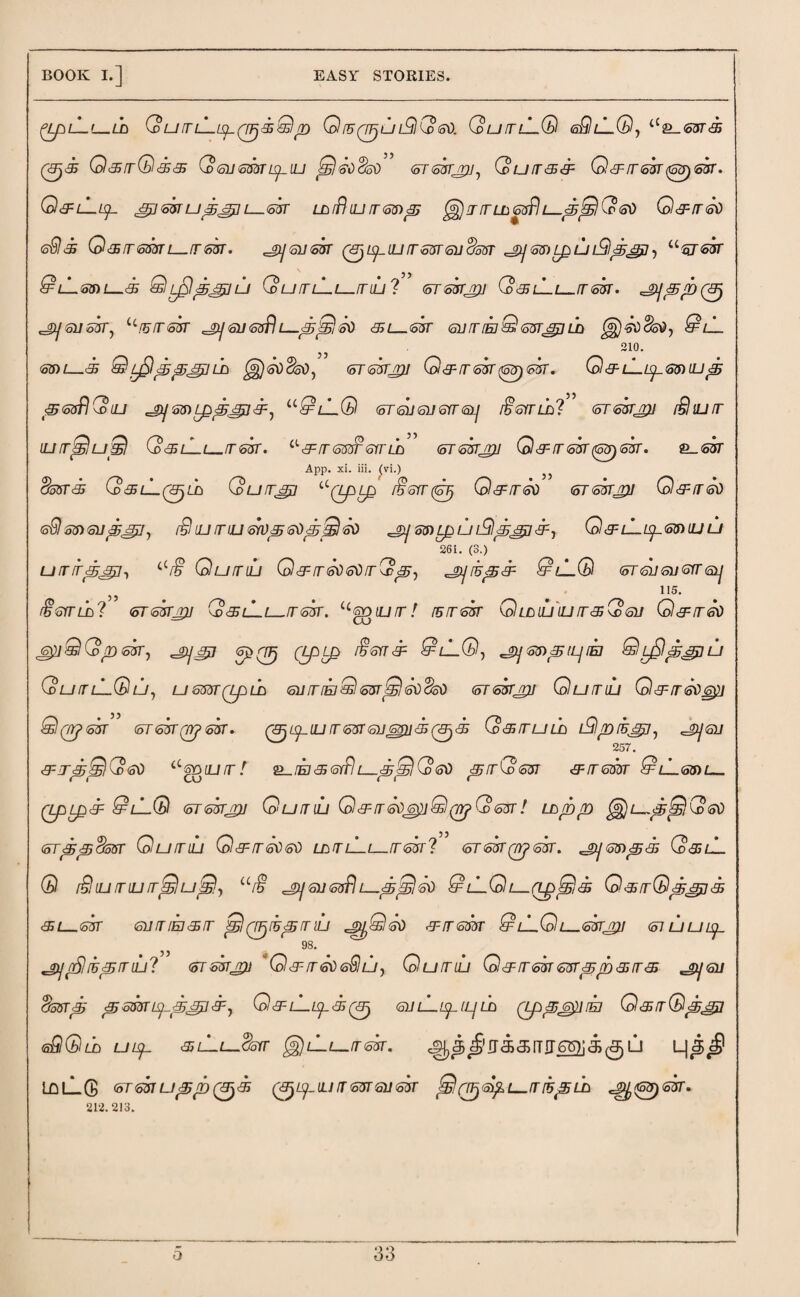 BOOK I.] EASY STORIES.
மூட்டம் போட்டிருக்கிற நெருப்பிலே. போட்டு விட்டு, “உனக்
குக் கொடுக்க வேண்டிய தில்லை” என்று, போகச் சொன்னான்.
செட்டி துன்பத்துடன் மரியாதை இராமனிடத்திலே சொல்
விக் கொண்டான். அவன் குடியானவனை அழைப்பித்து, “ஏன்
சீட்டைக் கிழித்துப் போட்டாய்?” என்று கேட்டான். அதற்கு
அவன், “நான் அவனிடத்தில் கடன் வாங்கினதும் இல்லை, சீட்
210.
டைக் கிழித்ததும் இல்லை,” என்று சொன்னான். செட்டியைத்
தனியே அழைத்துச், “சீட்டு எவ்வளவு நீளம்?” என்று நியா
யாதிபதி கேட்டான். “சாணளம்” என்று சொன்னான். உன்
App. xi. iii. (vi.)
னைக் கேட்கும் போது “முழ நீளஞ் சொல்” என்று சொல்
விவைத்து, நியாயஸ்தலத்தில் அழைப்பித்துச், செட்டியைப்
261. (3.)
பார்த்து, “நீ பொய் சொல்லாதே, அந்தச் சீட்டு எவ்வளவு
115.
நீளம்?” என்று கேட்டான். “ஐயா! நான் மெய்யாகவே சொல்
லுகிறேன், அது ஒரு முழ நீளச் சீட்டு, அதையுங் கிழித்துப்
போட்டுப், பணமும் வாங்கினதில்லை என்று பொய் சொல்லு
கிறான்” என்றான். குடியானவனுக்குக் கோபம் பிறந்து, அவ
257.
சரத்திலே “ஐயா! உங்களிடத்திலே தானே சாண் சீட்டை
முழச் சீட்டு என்று பொய் சொல்லுகிறானே! மற்ற இடத்திலே
எத்தனை பொய் சொல்ல மாட்டான்?” என்றான். அதைக் கேட்
டு நியாயாதிபதி, “நீ அவனிடத்தில் சீட்டெழுதிக் கொடுத்துக்
கடன் வாங்கா திருந்தாய் ஆகில் சாண் சீட்டென்று எப்படி
98.
அறிந்தாய்?” என்று சொல்லவிப், பொய் சொன்னதற்காக அவ
னைத் தண்டித்துச், செட்டிக்கு வட்டியும் முத்லுங் கொடுத்து
விடும் படி கட்டளை இட்டான். ஆத்திரக்காரனுக்குப் புத்தி
மட்டு என்பதற்குக் குடியானவன் திருஷ்டாந்தம் ஆனான்.
212. 213.
5 33